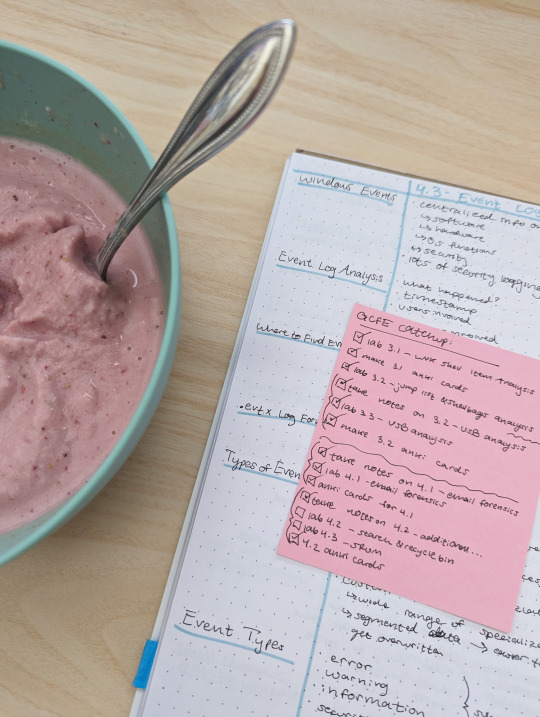 Windows Events
4.3 - Event Log
· centralized info on
↳ software
↳ hardware
↳ OS functions
↳ security
· lots of security logging
Event Log Analysis
what happened?
timestamp
users involved
involved
Where to Find Ev
.evtx Log For
Types of Even
GCFE Catchup:
☑ lab 3.1 - shell item analysis
☑ make 3.1 anki cards
☑ lab 3.2 - jump list & shellbags analysis
☑ take notes on 3.2 - USB analysis
☑ lab 3.3 - USB analysis
☑ make 3.2 anki cards
☑ take notes on 4.1 - email forensics
☑ lab 4.1 - email forensics
☑ anki cards for 4.1
☑ take notes on 4.2 - additional...
☐ lab 4.2 - search & recycle bin
☐ lab 4.3 - srum
☑ 4.2 anki cards
custom
↳ wide range of specializ
↳ segmented → easier t
get overwritten
Event Types
error
warning
information